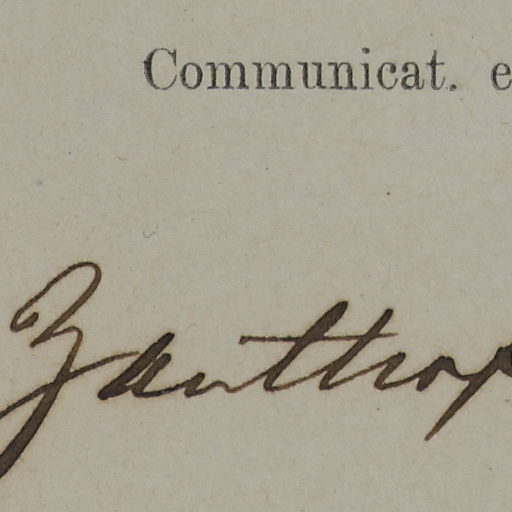 Communicat. e
Zanthop